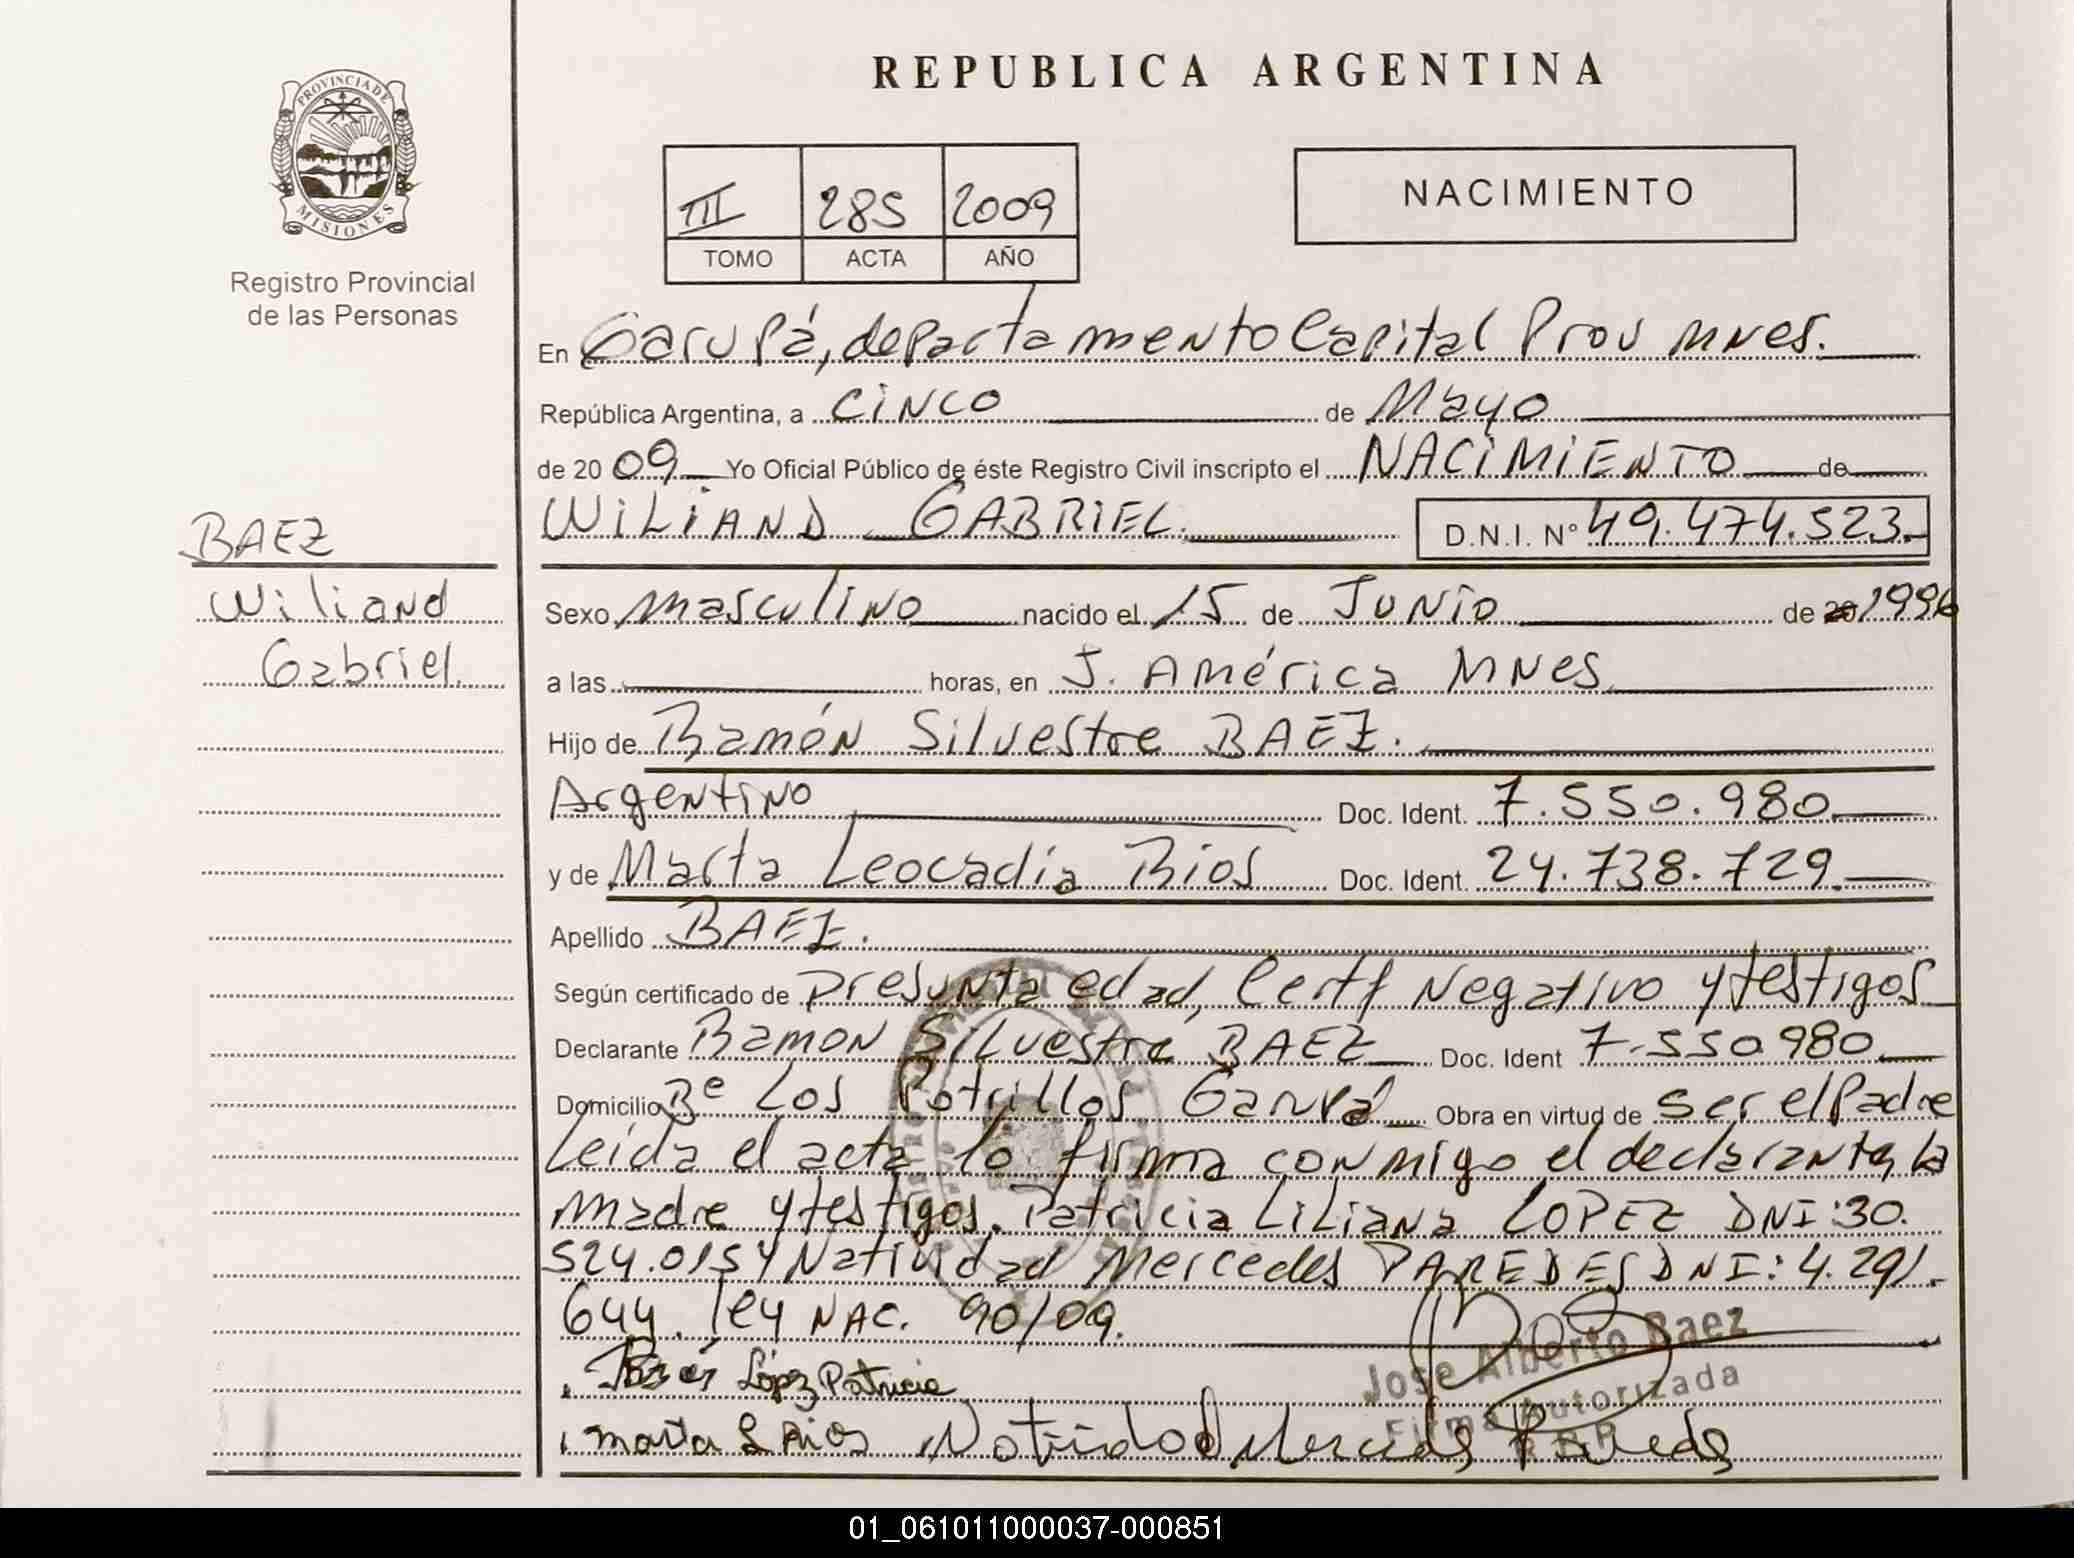 REPUBLICA ARGENTINA
PROVINCIA DE
MISIONES
Registro Provincial
de las Personas
III 285 2009
TOMO ACTA AÑO
NACIMIENTO
En Garupá, departamento Capital Prov Mnes.
República Argentina, a cinco de Mayo
de 20 09 Yo Oficial Público de éste Registro Civil inscripto el NACIMIENTO de
WILIAND GABRIEL. D.N.I. N° 49.474.523.
BAEZ
Wiliand
Gabriel.
Sexo masculino nacido el 15 de Junio de 20 1996
a las horas, en J. América Mnes
Hijo de Ramón Silvestre BAEZ.
Argentino Doc. Ident. 7.550.980
y de Marta Leocadia Rios Doc. Ident. 24.738.729.
Apellido BAEZ.
Según certificado de presunta edad, Certf Negativo y testigos
Declarante Ramon Silvestre BAEZ Doc. Ident 7.550980
Domicilio Bº Los Potrillos Garupá Obra en virtud de ser el Padre
Leida el acta lo firma conmigo el declarante, la
madre y testigos. Patricia Liliana LOPEZ DNI: 30.
524.015 y Natividad Mercedes PAREDES DNI: 4.291.
644. ley NAC. 90/09.
Jose Alberto Baez
Firma Autorizada
R.P.P
López Patricia
marta L Rios Natividad Mercedes Paredes
01_061011000037-000851